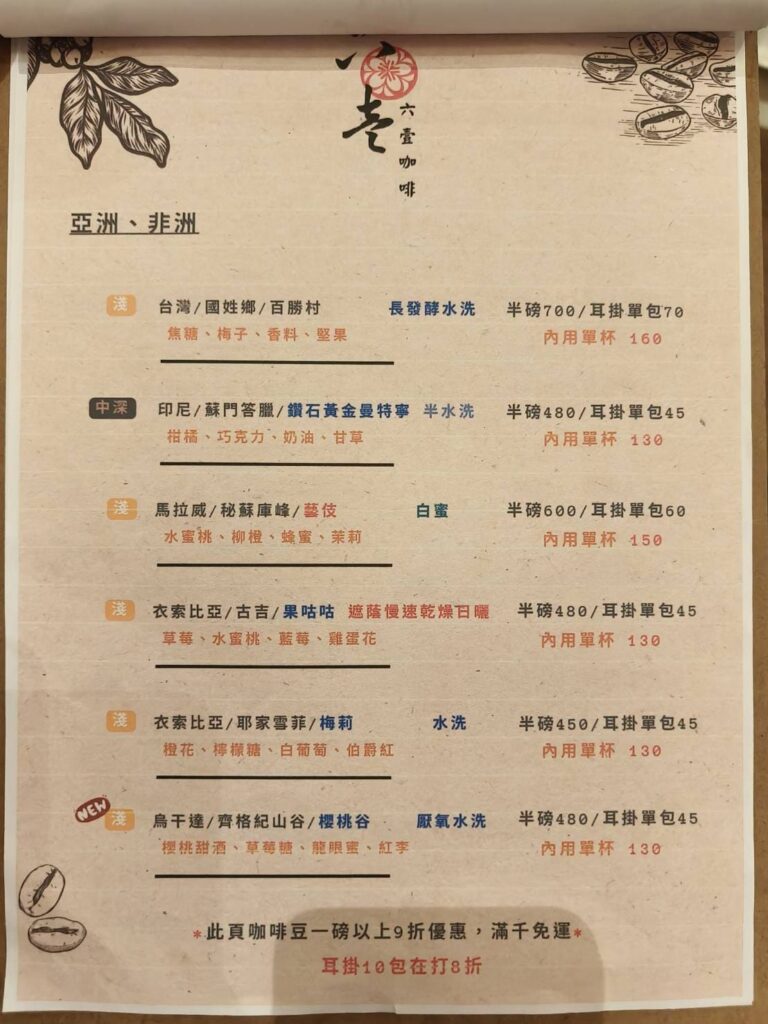 六壹
六壹咖啡
亞洲、非洲
淺 台灣/國姓鄉/百勝村 長發酵水洗 半磅700/耳掛單包70
焦糖、梅子、香料、堅果 內用單杯 160
中深 印尼/蘇門答臘/鑽石黃金曼特寧 半水洗 半磅480/耳掛單包45
柑橘、巧克力、奶油、甘草 內用單杯 130
淺 馬拉威/秘蘇庫峰/藝伎 白蜜 半磅600/耳掛單包60
水蜜桃、柳橙、蜂蜜、茉莉 內用單杯 150
淺 衣索比亞/古吉/果咕咕 遮蔭慢速乾燥日曬 半磅480/耳掛單包45
草莓、水蜜桃、藍莓、雞蛋花 內用單杯 130
淺 衣索比亞/耶家雪菲/梅莉 水洗 半磅450/耳掛單包45
橙花、檸檬糖、白葡萄、伯爵紅 內用單杯 130
NEW 淺 烏干達/齊格紀山谷/櫻桃谷 厭氧水洗 半磅480/耳掛單包45
櫻桃甜酒、草莓糖、龍眼蜜、紅李 內用單杯 130
*此頁咖啡豆一磅以上9折優惠，滿千免運*
耳掛10包在打8折